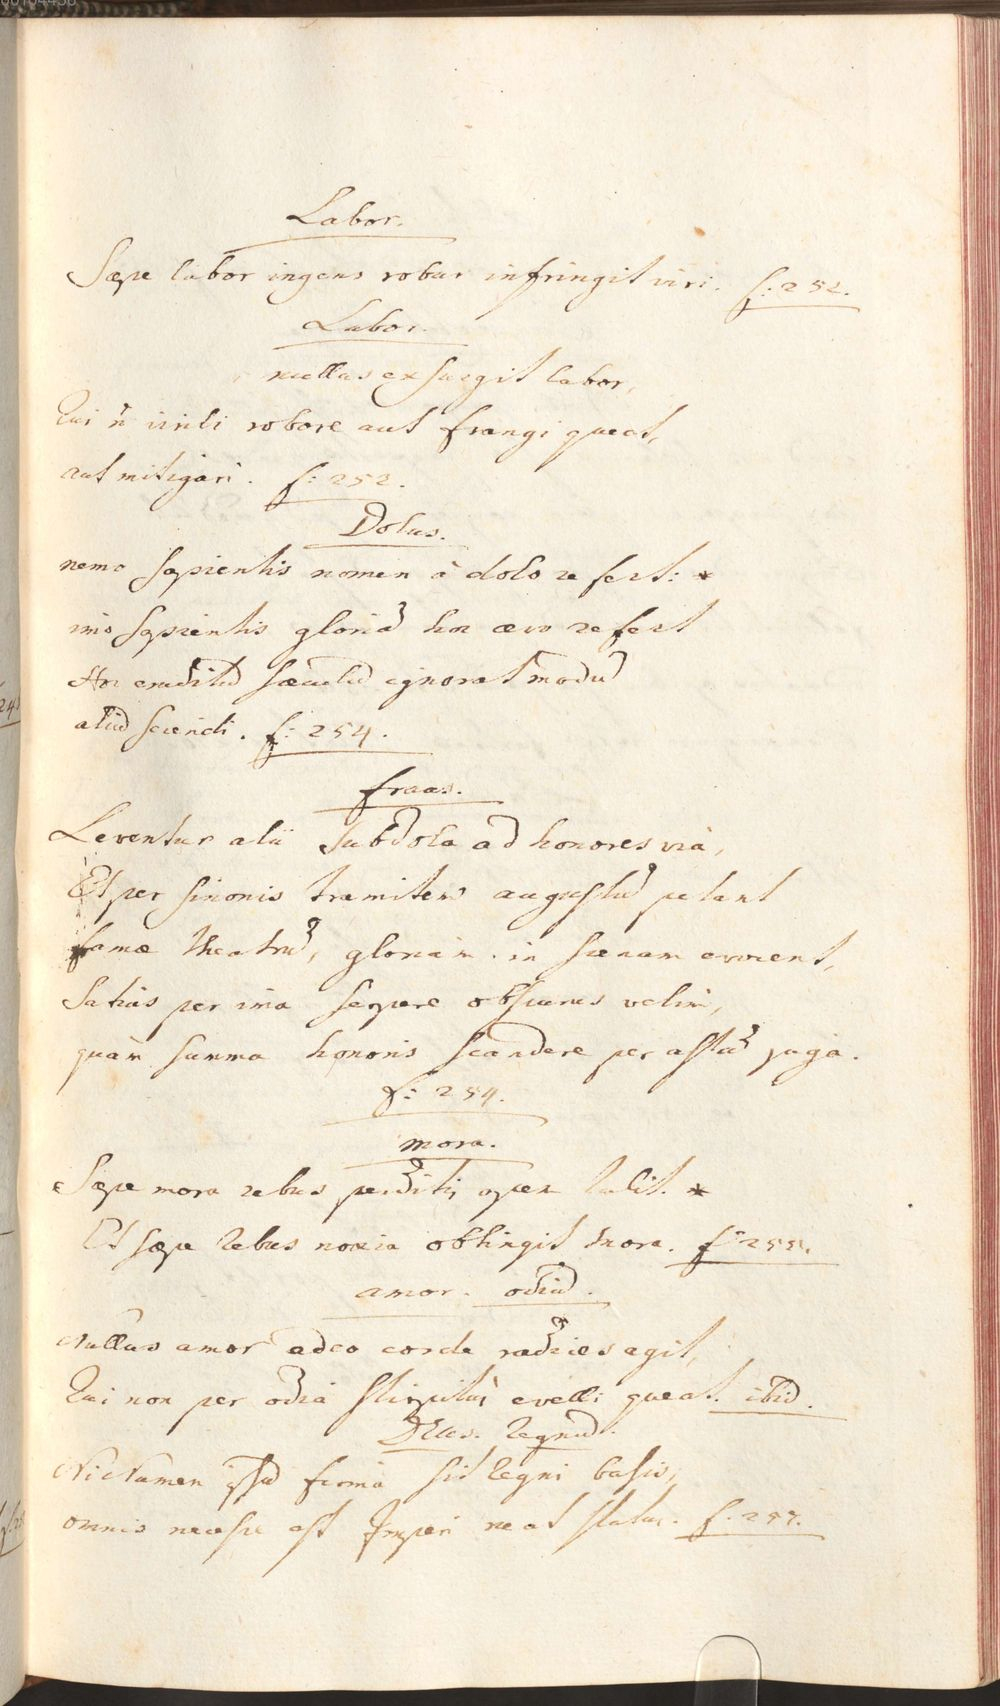 Labor.
Sæpe labor ingens robur infringit viri. f: 252.
Labor.
nullus exsurgit labor,
Qui ñ virili robore aut frangi queat,
aut mitigari. f: 252.
Dolus.
nemo sapientis nomen à dolo refert: *
imo sapientis gloriā hoc ævo refert
Hoc eruditū sæculū ignorat modū
aliud sciendi. f: 254.
fraus.
Leventur alii subdola ad honores via,
Et per sinonis tramitem augustū petant
famæ theatrū, gloriam in scenam evocent,
Satius per ima serpere obscurus velim,
quàm summa honoris scandere per astū juga.
f: 254.
mora.
Sæpe mora rebus perditis opem tulit. *
Et sæpe rebus noxia obtingit mora. f: 255.
amor. odiū.
Nullus amor adeo corde radices agit,
Qui non per odia stirpitus evelli queat. ibid.
Deus. Regnū.
Ni Numen ipsū firma sit regni basis,
omnis necesse est Imperi ruat status. f. 257.